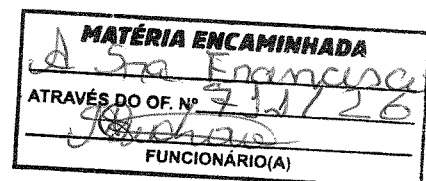 MATÉRIA ENCAMINHADA
A Sra Francisca
ATRAVÉS DO OF. Nº 711/26
FUNCIONÁRIO(A)